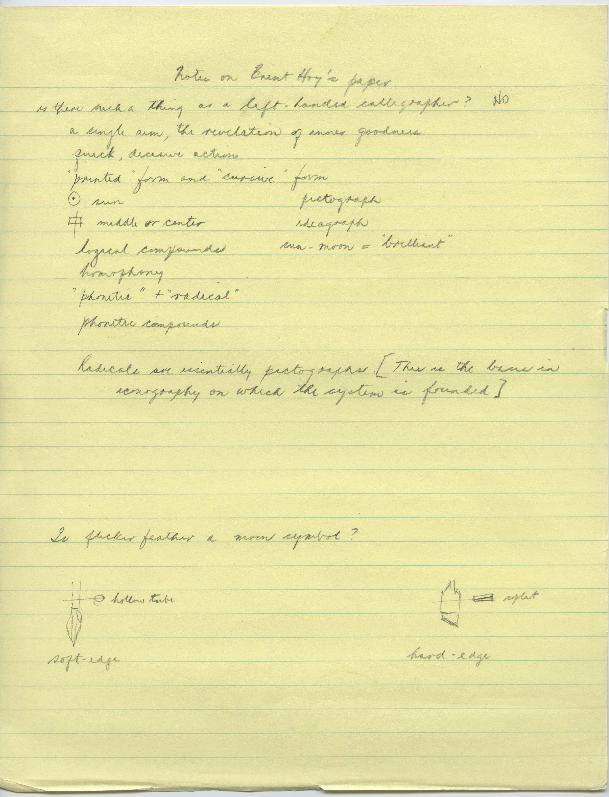 Notes on Brent Hoy's paper
is there such a thing as a left-handed callegrapher? NO
a single arm, the revelation of inner goodness
quick, decisive action
"printed" form and "cursive" form
sun pictograph
middle or center ideagraph
logical compounds sun-moon = "brilliant"
homophony
"phonetic" + "radical"
phonetic compounds
Radicals are essentially pictographs [This is the basis in
iconography on which the system is founded]
Is flicker feather a moon symbol?
hollow tube
split
soft-edge
hard-edge